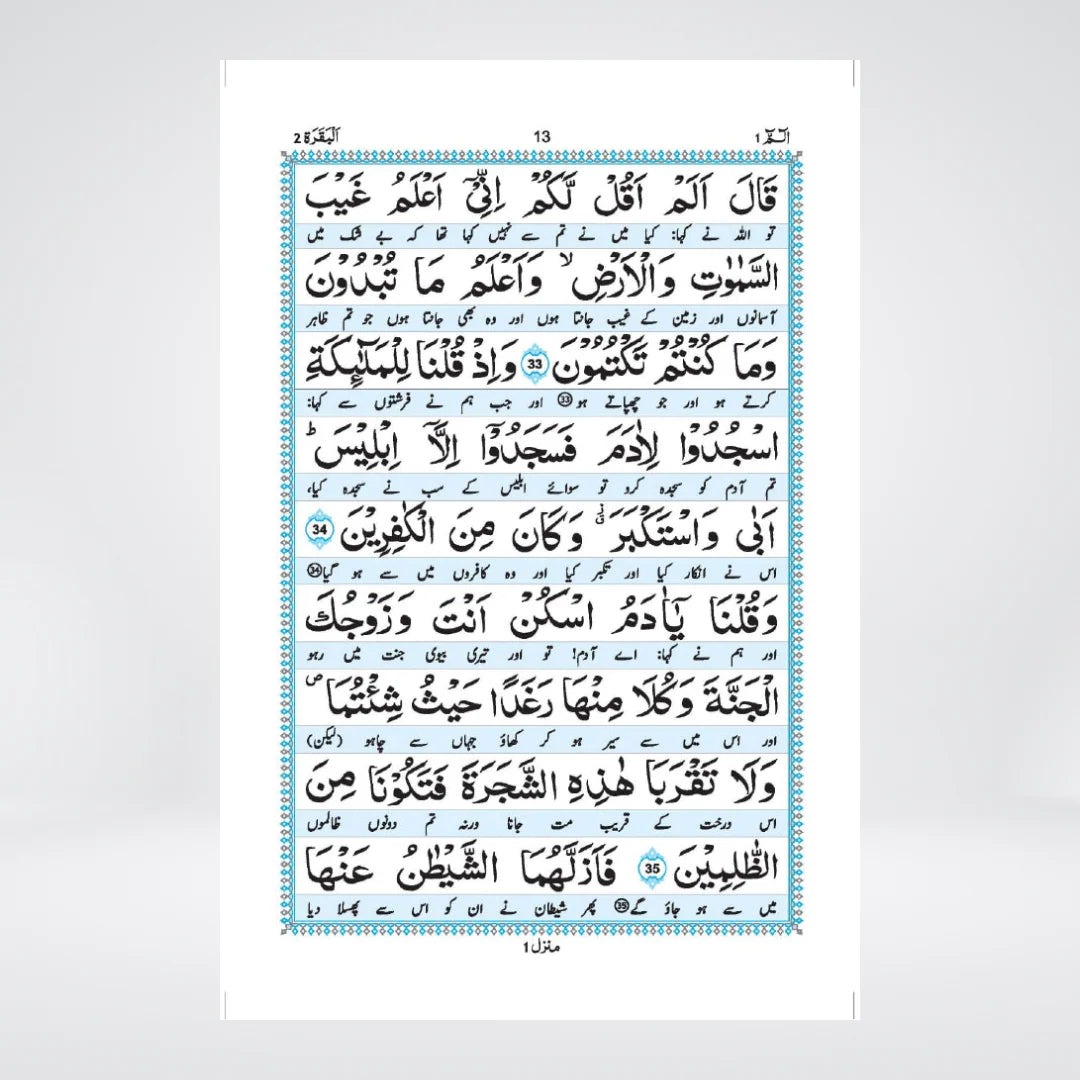 الٓـمّٓ 1 13 اَلْبَقَرَة 2
قَالَ اَلَمْ اَقُلْ لَّكُمْ اِنِّیْۤ اَعْلَمُ غَیْبَ
تو اللہ نے کہا: کیا میں نے تم سے نہیں کہا تھا کہ بے شک میں
السَّمٰوٰتِ وَالْاَرْضِ ۙ وَاَعْلَمُ مَا تُبْدُوْنَ
آسمانوں اور زمین کے غیب جانتا ہوں اور وہ بھی جانتا ہوں جو تم ظاہر
وَمَا كُنْتُمْ تَكْتُمُوْنَ 33 وَاِذْ قُلْنَا لِلْمَلٰٓىِٕكَةِ
کرتے ہو اور جو چھپاتے ہو ㉝ اور جب ہم نے فرشتوں سے کہا:
اسْجُدُوْا لِاٰدَمَ فَسَجَدُوْۤا اِلَّاۤ اِبْلِیْسَ ؕ
تم آدم کو سجدہ کرو تو سوائے ابلیس کے سب نے سجدہ کیا،
اَبٰی وَاسْتَكْبَرَ ۗ٘ وَكَانَ مِنَ الْكٰفِرِیْنَ 34
اس نے انکار کیا اور تکبر کیا اور وہ کافروں میں سے ہو گیا ㉞
وَقُلْنَا یٰۤاٰدَمُ اسْكُنْ اَنْتَ وَزَوْجُكَ
اور ہم نے کہا: اے آدم! تو اور تیری بیوی جنت میں رہو
الْجَنَّةَ وَكُلَا مِنْهَا رَغَدًا حَیْثُ شِئْتُمَا ۪
اور اس میں سے سیر ہو کر کھاؤ جہاں سے چاہو (لیکن)
وَلَا تَقْرَبَا هٰذِهِ الشَّجَرَةَ فَتَكُوْنَا مِنَ
اس درخت کے قریب مت جانا ورنہ تم دونوں ظالموں
الظّٰلِمِیْنَ 35 فَاَزَلَّهُمَا الشَّیْطٰنُ عَنْهَا
میں سے ہو جاؤ گے ㉟ پھر شیطان نے ان کو اس سے پھسلا دیا
منزل 1